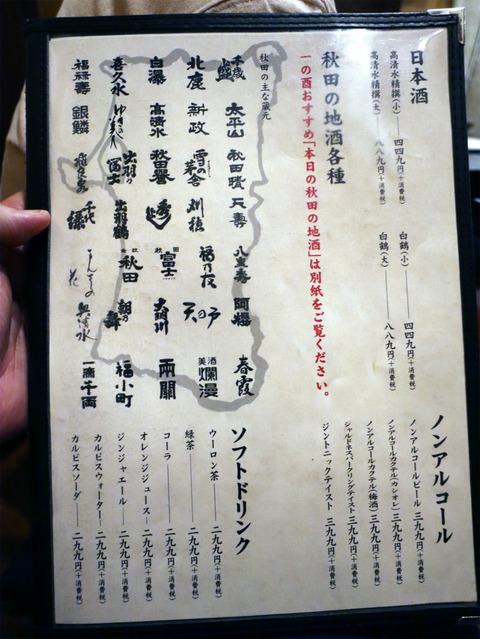 日本酒
高清水精撰(小) 四四九円(+消費税)
高清水精撰(大) 八八九円(+消費税)
白鶴(小) 四四九円(+消費税)
白鶴(大) 八八九円(+消費税)
秋田の地酒各種
一の酉おすすめ「本日の秋田の地酒」は別紙をご覧ください。
秋田の主な蔵元
千歳盛
太平山
秋田晴
天寿
八重寿
阿櫻
春霞
北鹿
新政
雪の茅舎
刈穂
福乃友
天の戸
美酒爛漫
白瀑
高清水
秋田誉
秋田富士
大納川
両關
喜久水
出羽の冨士
出羽鶴
秋田
朝乃舞
福小町
福禄寿
銀鱗
飛良泉
千代緑
まんさくの花
奥清水
一滴千両
ノンアルコール
ノンアルコールビール 三九九円(+消費税)
ノンアルコールカクテル(カシオレ) 三九九円(+消費税)
ノンアルコールカクテル(梅酒) 三九九円(+消費税)
シャルドネスパークリングテイスト 三九九円(+消費税)
ジントニックテイスト 三九九円(+消費税)
ソフトドリンク
ウーロン茶 二九九円(+消費税)
緑茶 二九九円(+消費税)
コーラ 二九九円(+消費税)
オレンジジュース 二九九円(+消費税)
ジンジャエール 二九九円(+消費税)
カルピスウォーター 二九九円(+消費税)
カルピスソーダ 二九九円(+消費税)